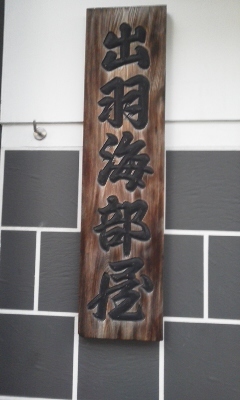 出羽海部屋